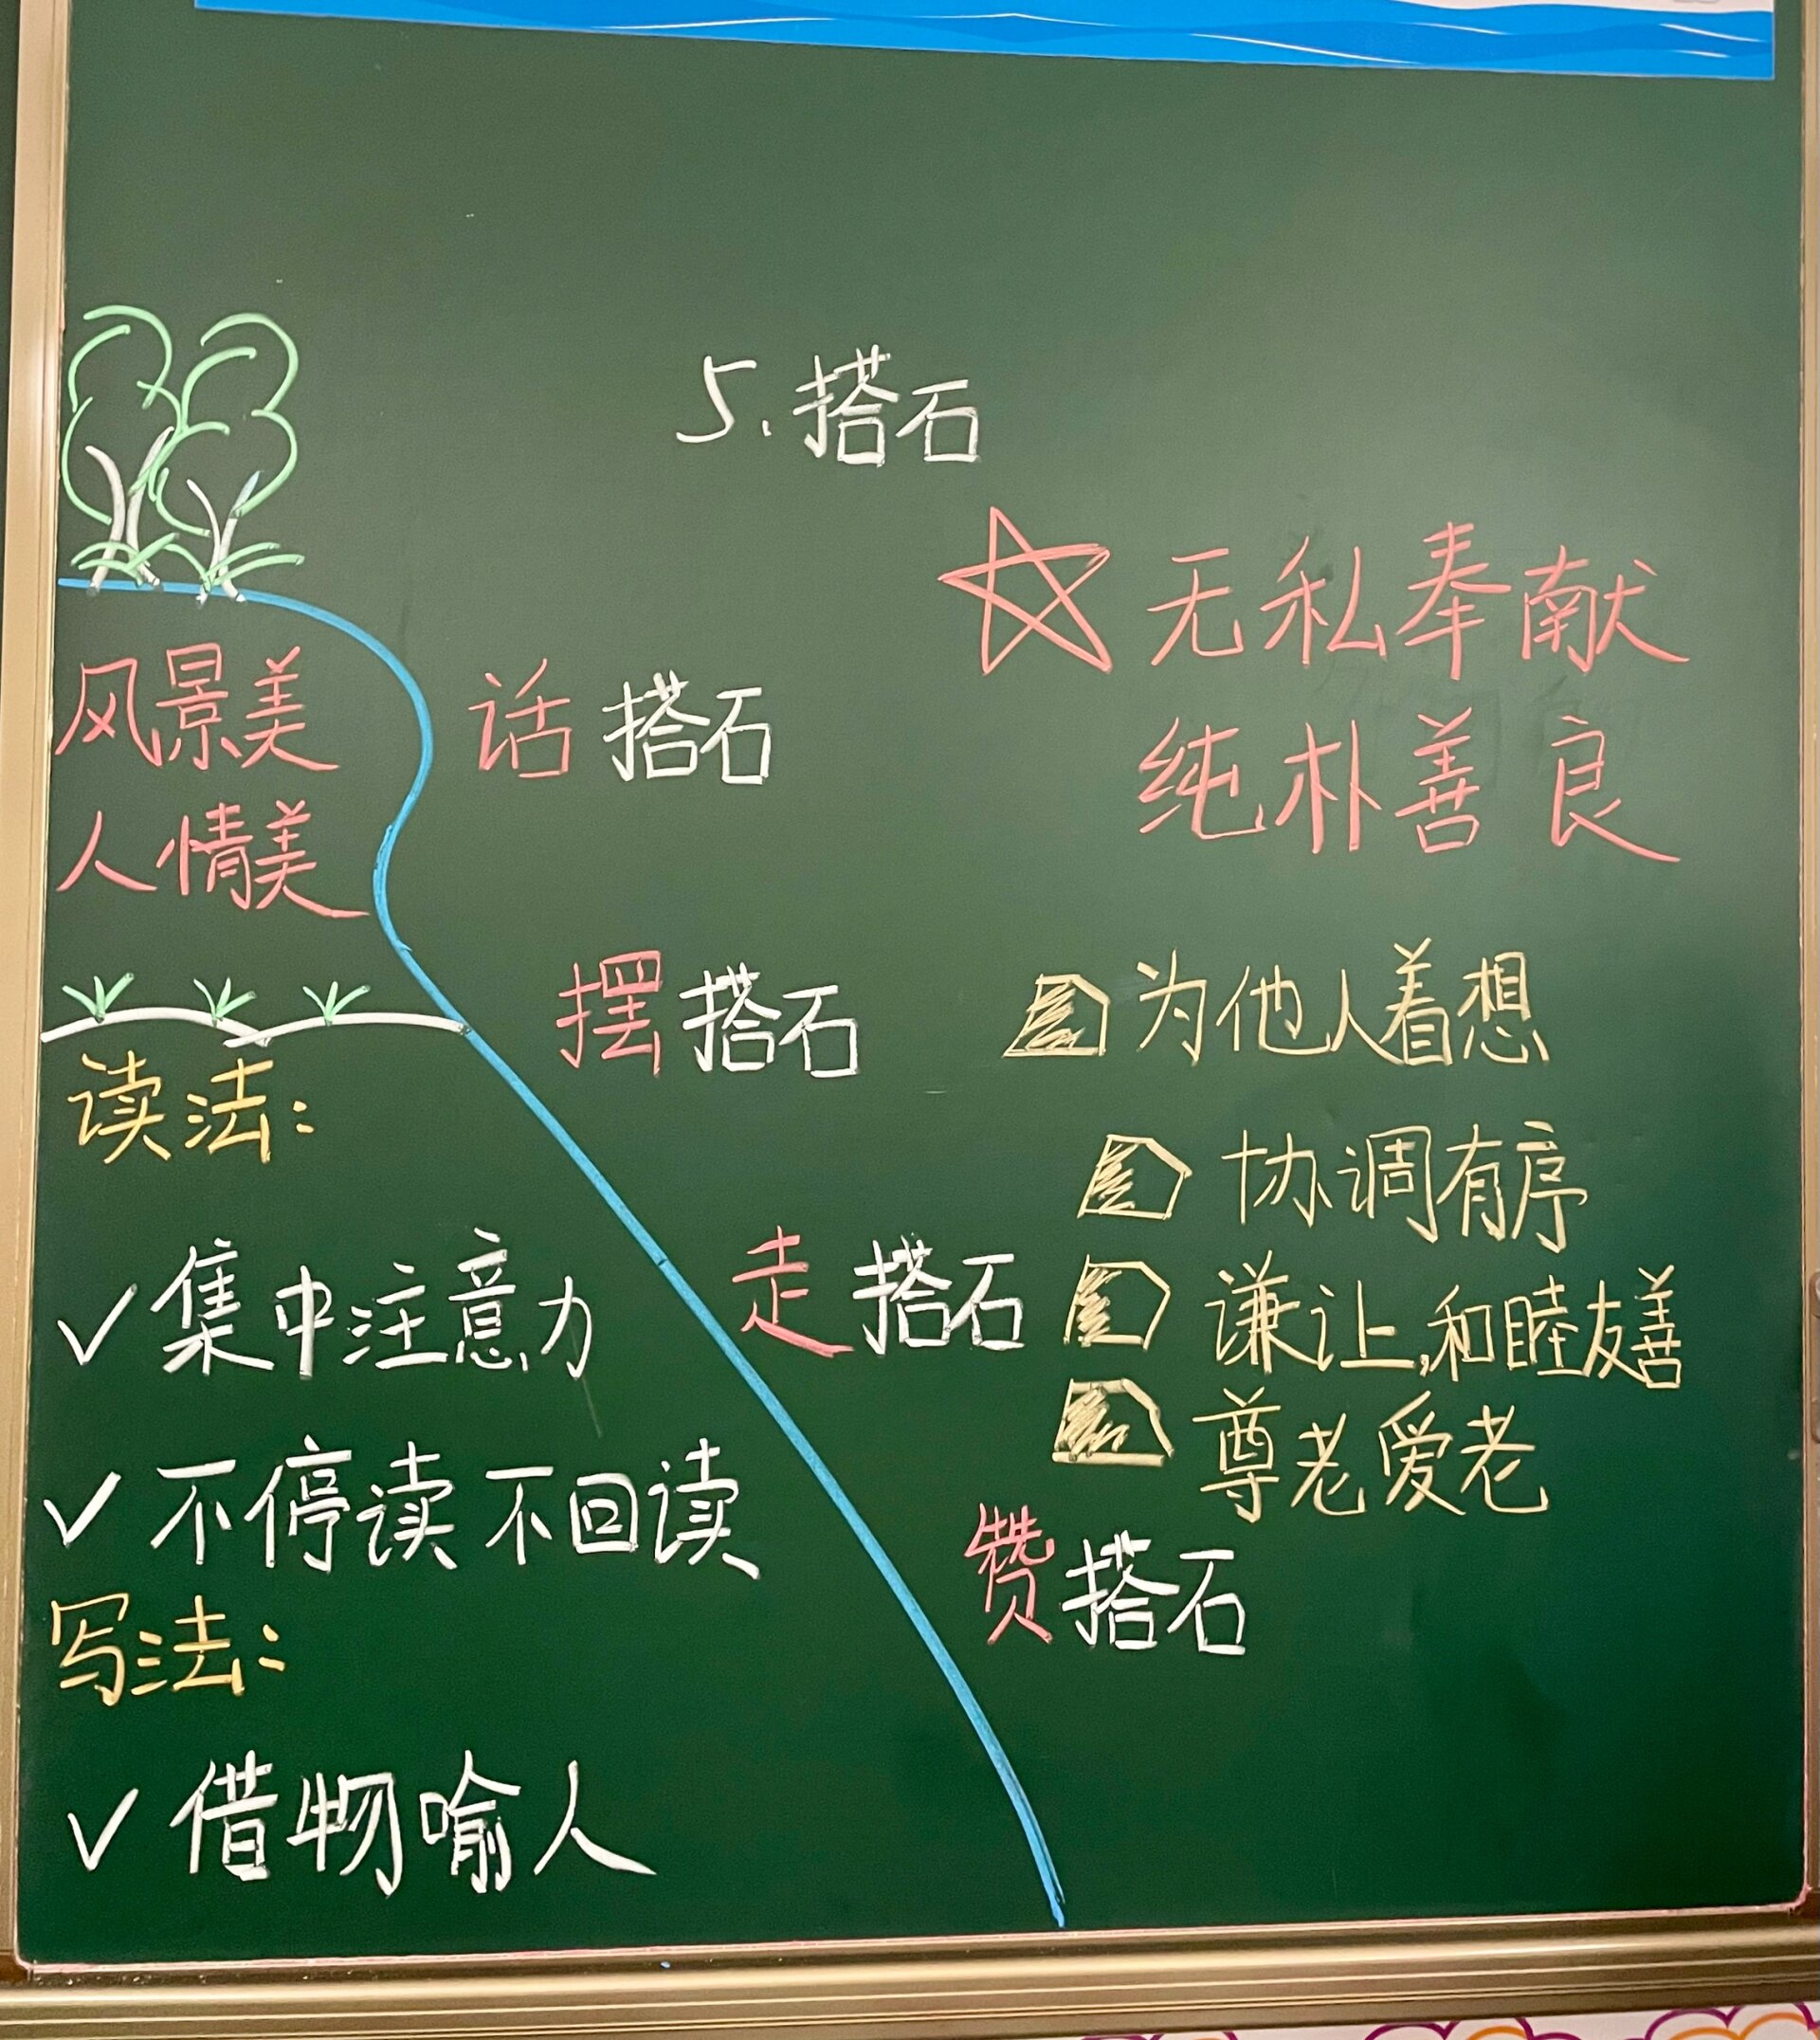 5.搭石
☆无私奉献
纯朴善良
风景美
人情美
话搭石
摆搭石
为他人着想
协调有序
走搭石
谦让,和睦友善
尊老爱老
赞搭石
读法:
✓集中注意力
✓不停读 不回读
写法:
✓借物喻人